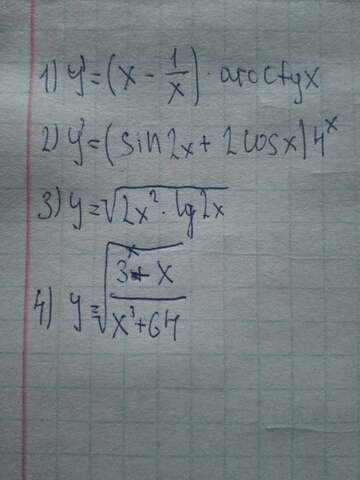 1) y' = (x - 1/x) · arcctgx
2) y' = (sin2x + 2cosx)4^x
3) y = √(2x² · lg2x)
4) y = √((3^x + x)/(x³ + 64))